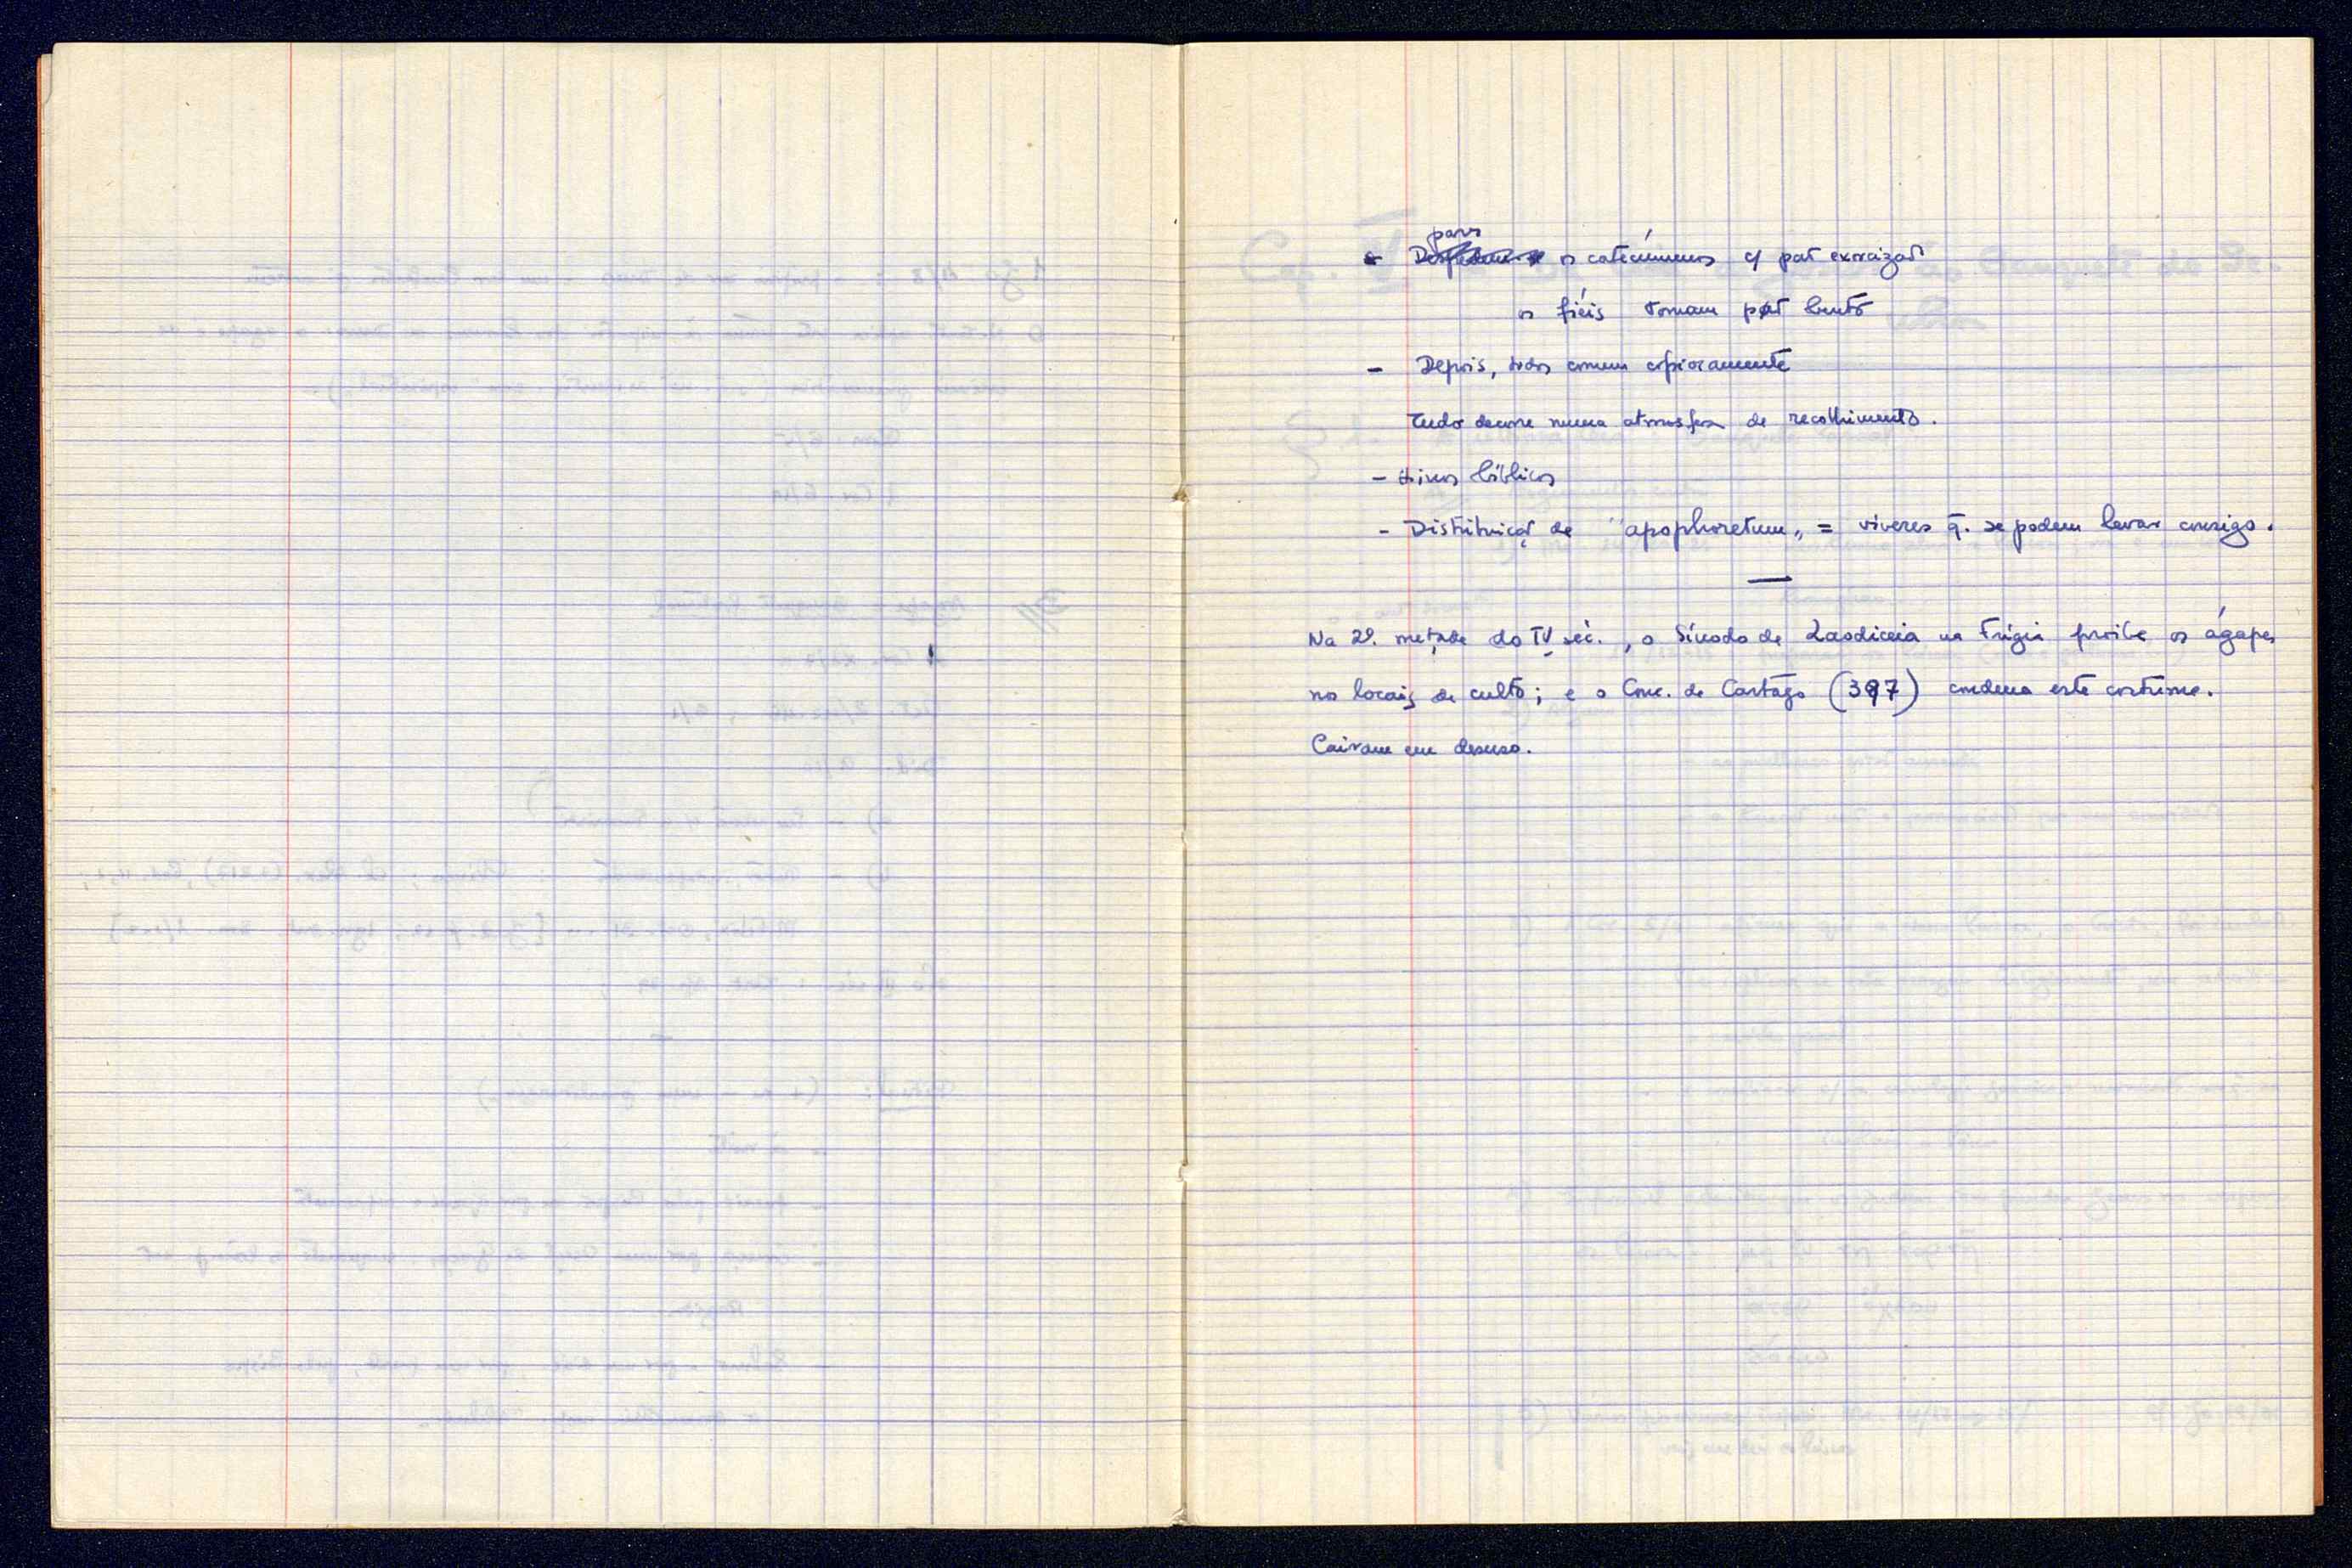 para
os catecúmenos c/ pão exorcizado
os fiéis tomam pão bento
- Depois, todos comem copiosamente
Tudo decorre numa atmosfera de recolhimento.
- Hinos bíblicos
- Distribuição de "apophoretum" = víveres q. se podem levar consigo.
—
Na 2ª. metade do IV séc., o Sínodo de Laodiceia na Frígia proíbe os ágapes
nos locais de culto; e o Conc. de Cartago (397) condena este costume.
Caíram em desuso.